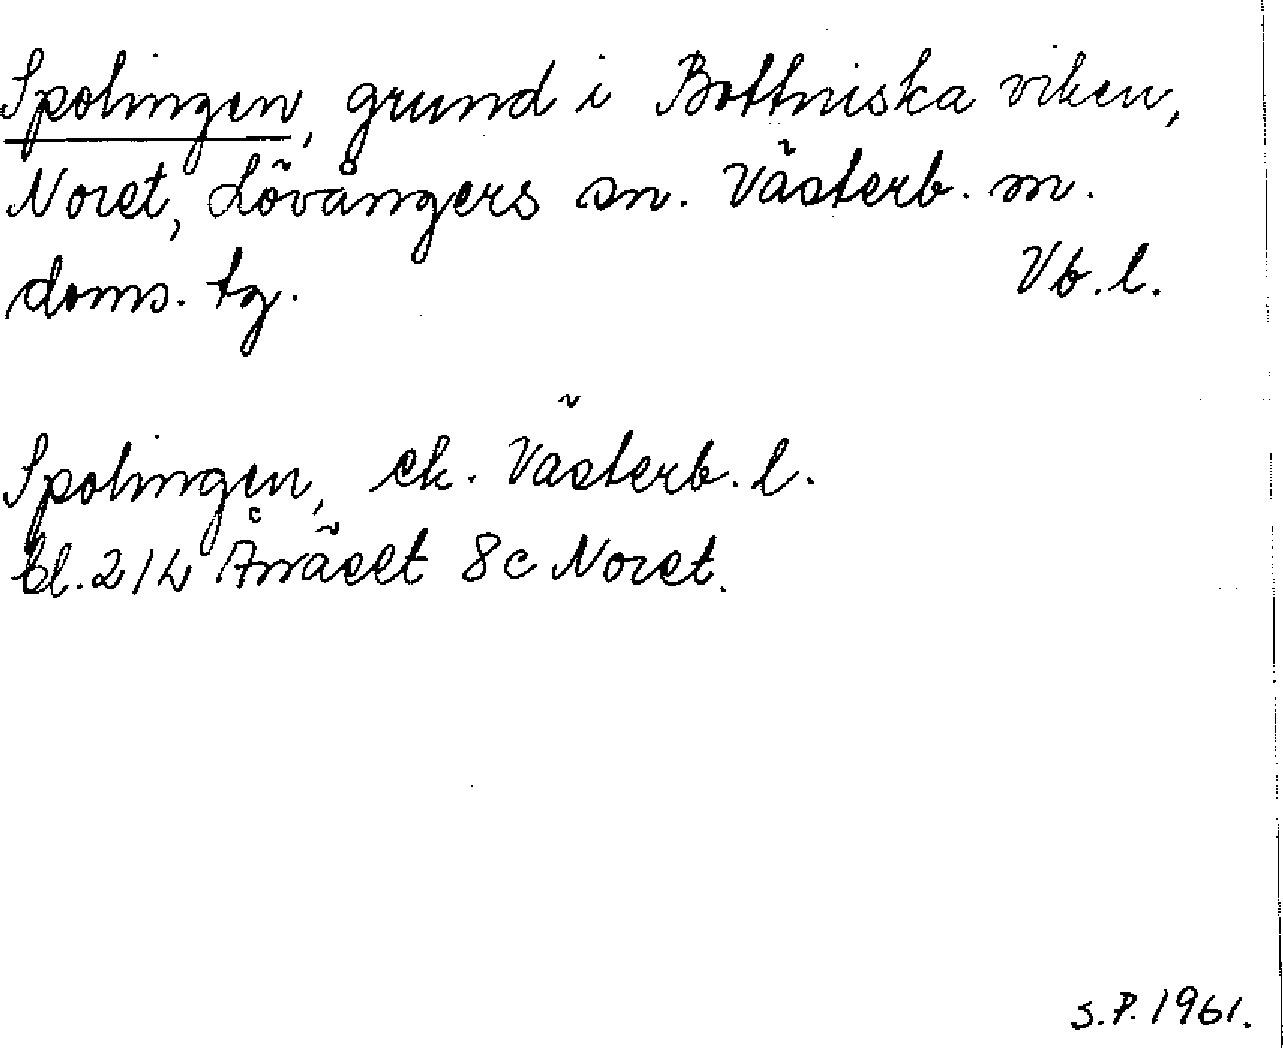 Spolingen, grund i Bottniska viken,
Noret, Lövångers sn. Västerb. m.
doms. tg. Vb. l.
Spolingen, ek. Västerb. l.
bl. 21L Ånäset 8c Noret.
S.P. 1961.